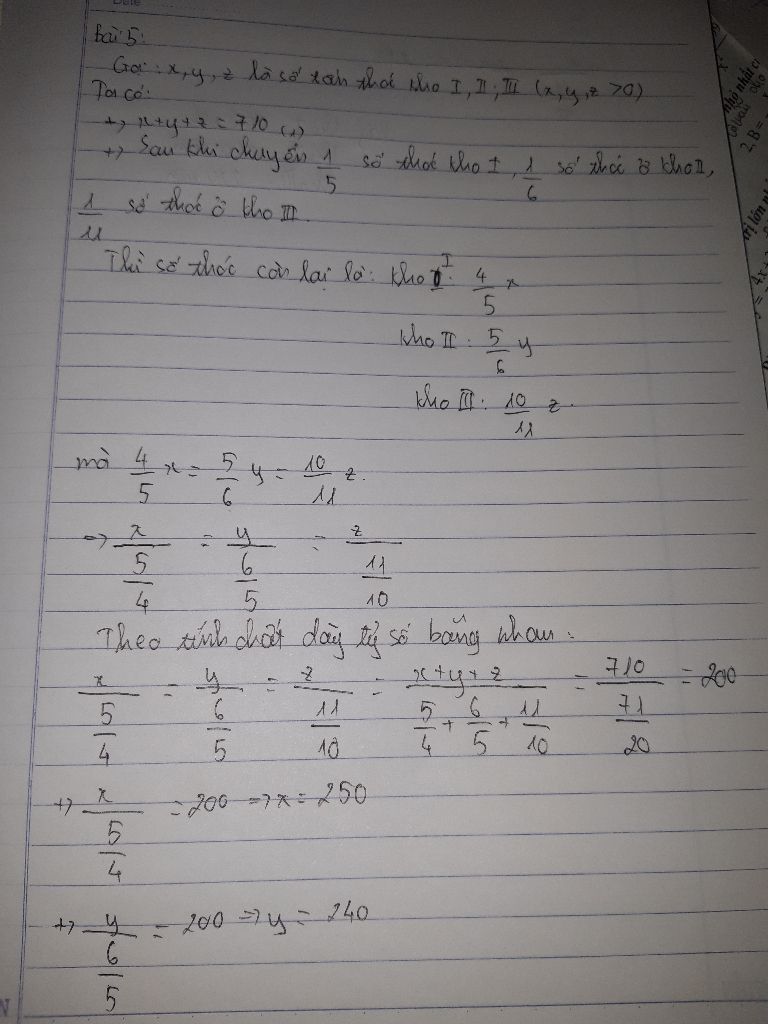 Date
bài 5:
Gọi: x, y, z là số thóc kho I, II, III (x, y, z >0)
Ta có:
+, x+y+z = 710 (1)
+, Sau khi chuyển 1/5 số thóc kho I, 1/6 số thóc ở kho II,
1/11 số thóc ở kho III.
Thì số thóc còn lại là: kho I: 4/5 x
kho II: 5/6 y
kho III: 10/11 z.
mà 4/5 x = 5/6 y = 10/11 z.
=> x/(5/4) = y/(6/5) = z/(11/10)
Theo tính chất dãy tỷ số bằng nhau:
x/(5/4) = y/(6/5) = z/(11/10) = (x+y+z)/(5/4 + 6/5 + 11/10) = 710/(71/20) = 200
+, x/(5/4) = 200 => x = 250
+, y/(6/5) = 200 => y = 240
N
nhỏ nhất c
2, B =